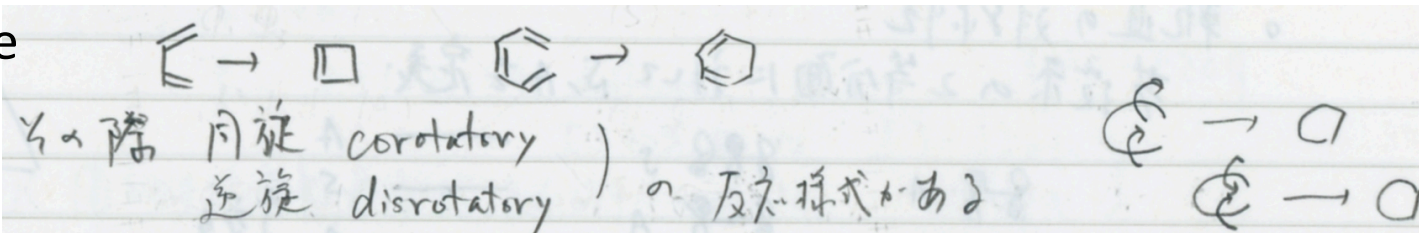 e
その際 同旋 corotatory
逆旋 disrotatory の 反応様式がある